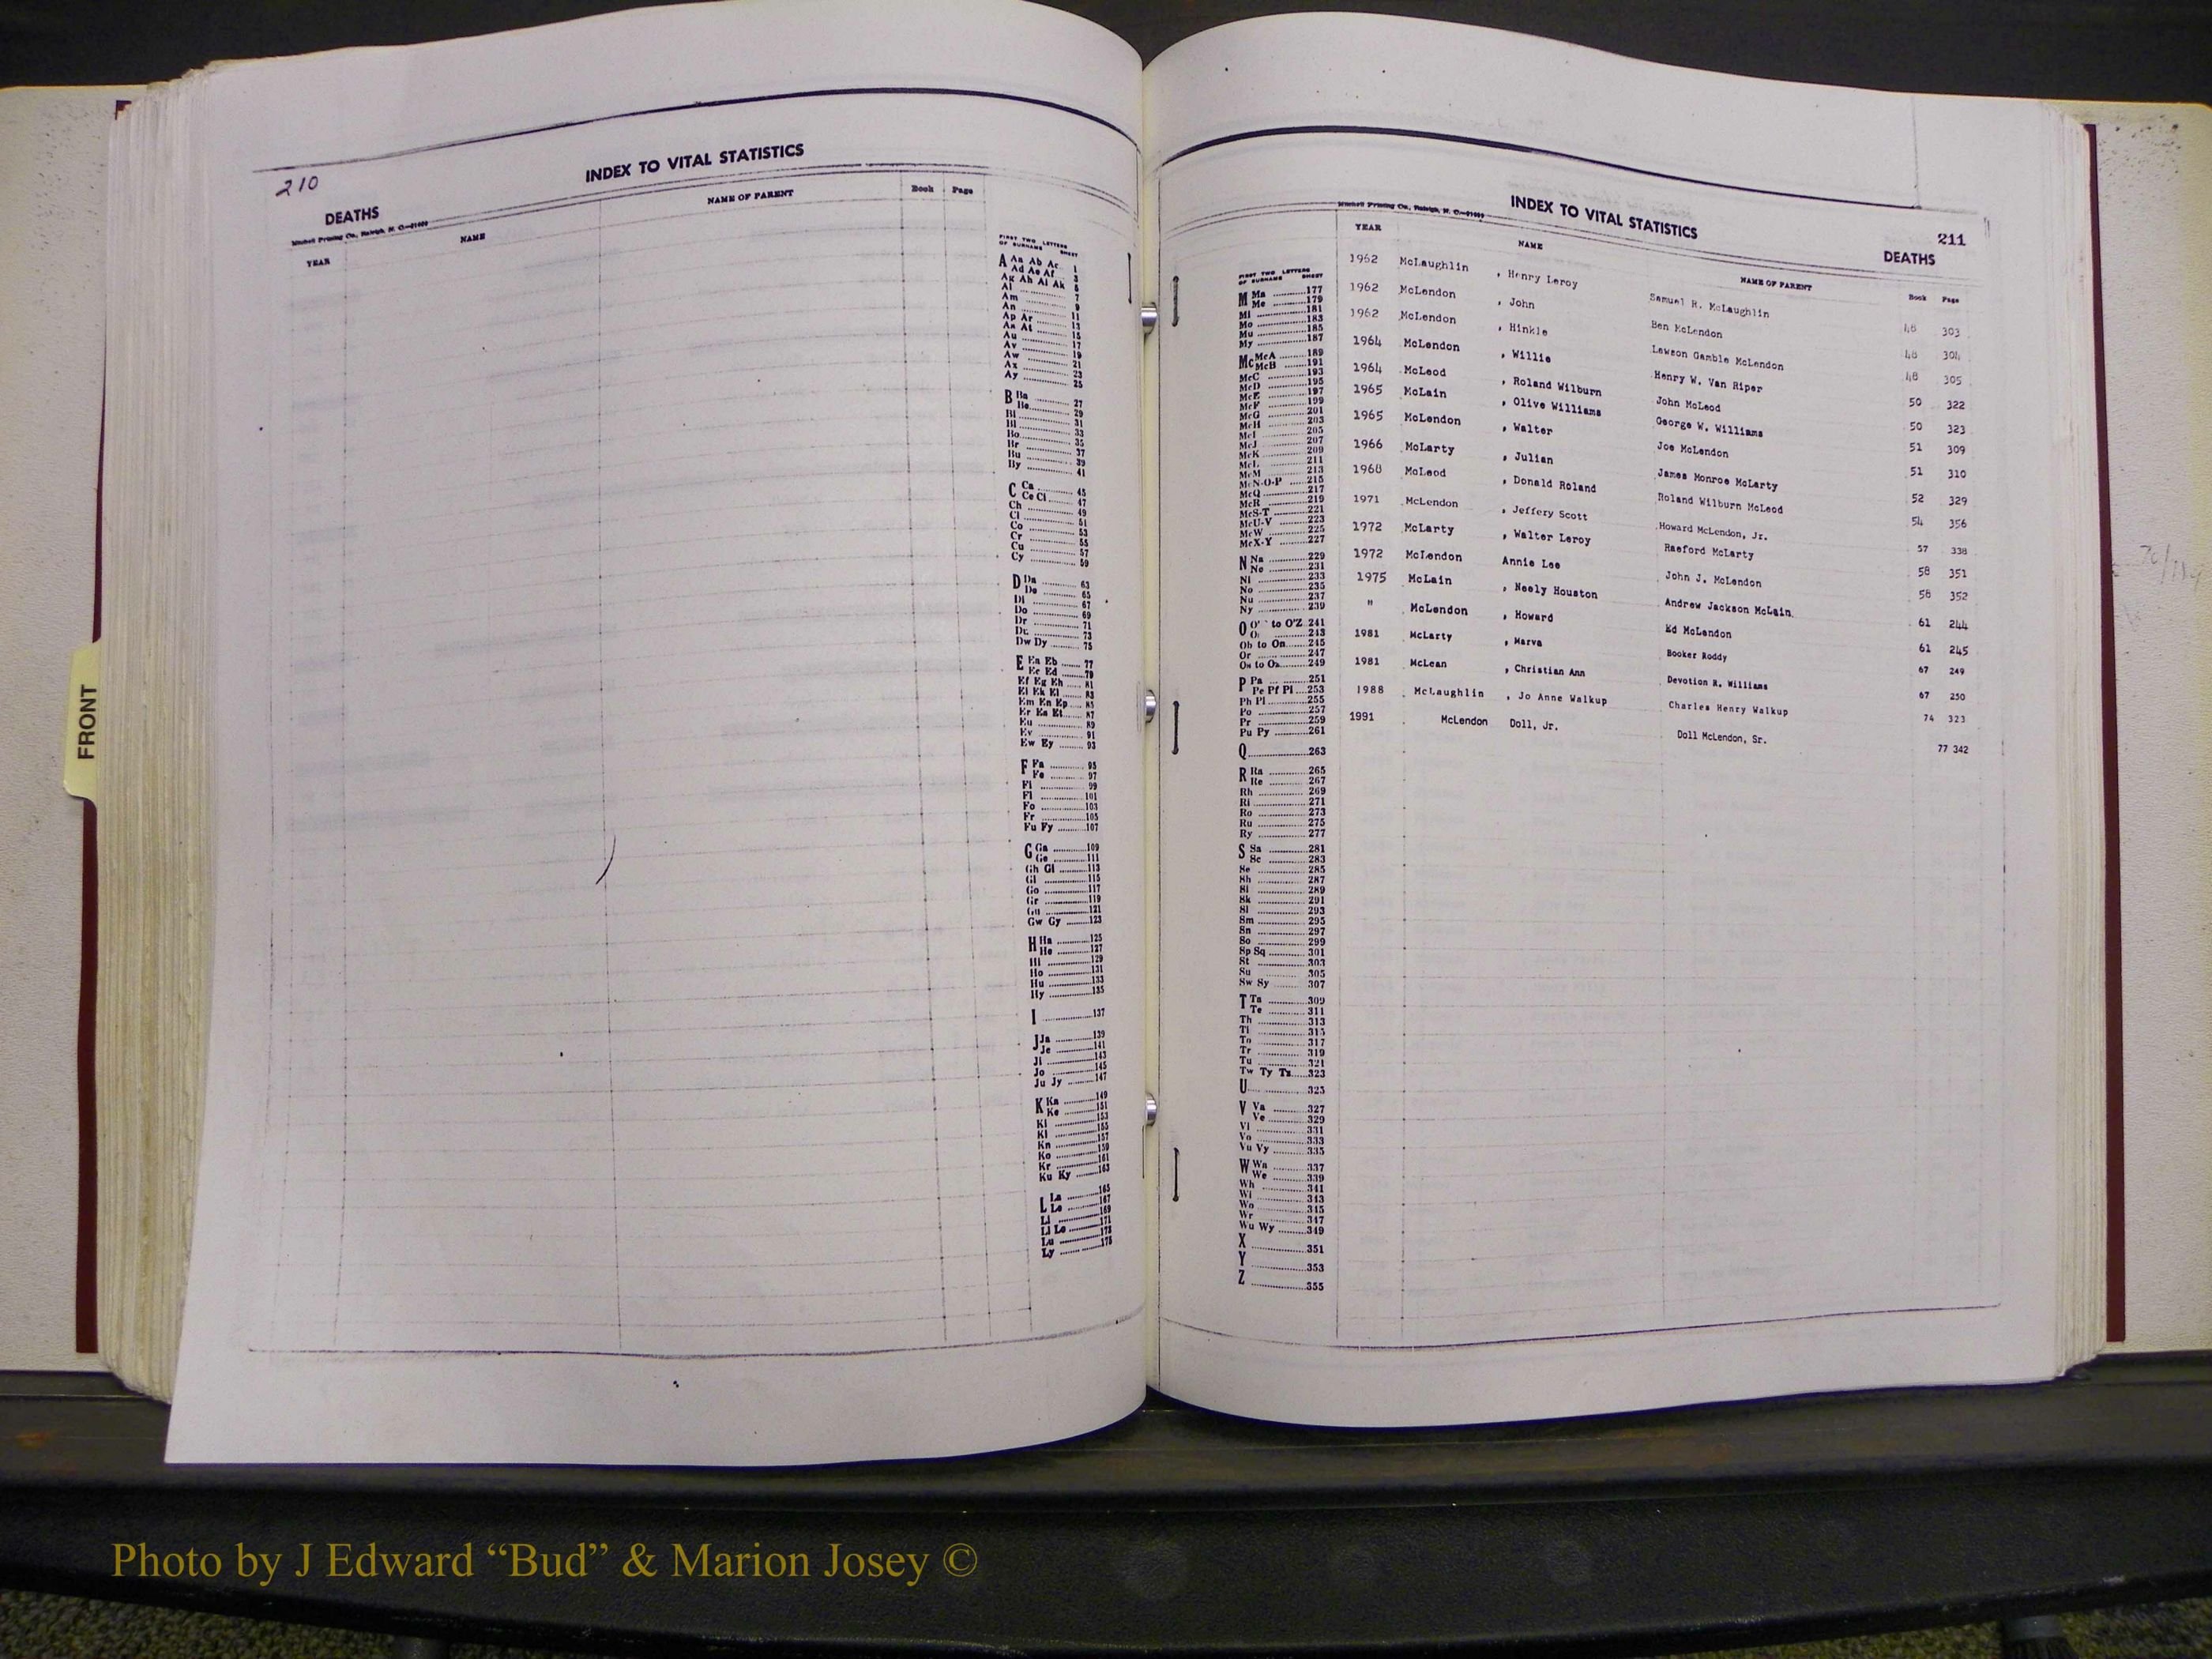 210
INDEX TO VITAL STATISTICS
DEATHS
Mitchell Printing Co., Raleigh, N. C.
YEAR NAME NAME OF PARENT Book Page
FIRST TWO LETTERS
OF SURNAME SHEET
A Aa Ab Ac 1
Ad Ae Af
Ag Ah Ai Ak
Al 7
Am 9
An 11
Ap Ar 13
As At 15
Au 17
Av 19
Aw 21
Ax 23
Ay 25
B Ba 27
Be 29
Bi 31
Bl 33
Bo 35
Br 37
Bu 39
By 41
C Ca 45
Ce Ci 47
Ch 49
Cl 51
Co 53
Cr 55
Cu 57
Cy 59
D Da 63
De 65
Di 67
Do 69
Dr 71
Du 73
Dw Dy 75
E Ea Eb 77
Ec Ed 79
Ef Eg Eh 81
Ei Ek El 83
Em En Ep 85
Er Es Et 87
Eu 89
Ev 91
Ew Ey 93
F Fa 95
Fe 97
Fi 99
Fl 101
Fo 103
Fr 105
Fu Fy 107
G Ga 109
Ge 111
Gh Gi 113
Gl 115
Go 117
Gr 119
Gu 121
Gw Gy 123
H Ha 125
He 127
Hi 129
Ho 131
Hu 133
Hy 135
I 137
J Ja 139
Je 141
Ji 143
Jo 145
Ju Jy 147
K Ka 149
Ke 151
Ki 153
Kl 155
Kn 157
Ko 159
Kr 161
Ku Ky 163
L La 165
Le 167
Li 169
Ll Lo 171
Lu 173
Ly 175
FRONT
INDEX TO VITAL STATISTICS
211
DEATHS
Mitchell Printing Co., Raleigh, N. C.
YEAR NAME NAME OF PARENT Book Page
1962 McLaughlin , Henry Leroy Samuel R. McLaughlin 48 303
1962 McLendon , John Ben McLendon 48 304
1962 McLendon , Hinkle Lawson Gamble McLendon 48 305
1964 McLendon , Willie Henry W. Van Riper 50 322
1964 McLeod , Roland Wilburn John McLeod 50 323
1965 McLain , Olive Williams George W. Williams 51 309
1965 McLendon , Walter Joe McLendon 51 310
1966 McLarty , Julian James Monroe McLarty 52 329
1968 McLeod , Donald Roland Roland Wilburn McLeod 54 356
1971 McLendon , Jeffery Scott Howard McLendon, Jr. 57 338
1972 McLarty , Walter Leroy Raeford McLarty 58 351
1972 McLendon Annie Lee John J. McLendon 58 352
1975 McLain , Neely Houston Andrew Jackson McLain 61 244
" McLendon , Howard Ed McLendon 61 245
1981 McLarty , Marva Booker Roddy 67 249
1981 McLean , Christian Ann Devotion R. Williams 67 250
1988 McLaughlin , Jo Anne Walkup Charles Henry Walkup 74 323
1991 McLendon Doll, Jr. Doll McLendon, Sr. 77 342
FIRST TWO LETTERS
OF SURNAME SHEET
M Ma 177
Me 179
Mi 181
Mo 183
Mu 185
My 187
Mc McA 189
McB 191
McC 193
McD 195
McE 197
McF 199
McG 201
McH 203
McI 205
McJ 207
McK 209
McL 211
McM 213
McN-O-P 215
McQ 217
McR 219
McS-T 221
McU-V 223
McW 225
McX-Y 227
N Na 229
Ne 231
Ni 233
No 235
Nu 237
Ny 239
O O' to O'Z 241
243
Ob to On 245
Or 247
Os to Oz 249
P Pa 251
Pe Pf Pi 253
Ph Pl 255
Po 257
Pr 259
Pu Py 261
Q 263
R Ra 265
Re 267
Rh 269
Ri 271
Ro 273
Ru 275
Ry 277
S Sa 281
Sc 283
Se 285
Sh 287
Si 289
Sk 291
Sl 293
Sm 295
Sn 297
So 299
Sp Sq 301
St 303
Su 305
Sw Sy 307
T Ta 309
Te 311
Th 313
Ti 315
To 317
Tr 319
Tu 321
Tw Ty Tz 323
U 325
V Va 327
Ve 329
Vi 331
Vo 333
Vu Vy 335
W Wa 337
We 339
Wh 341
Wi 343
Wo 345
Wr 347
Wu Wy 349
X 351
Y 353
Z 355
Photo by J Edward “Bud” & Marion Josey ©